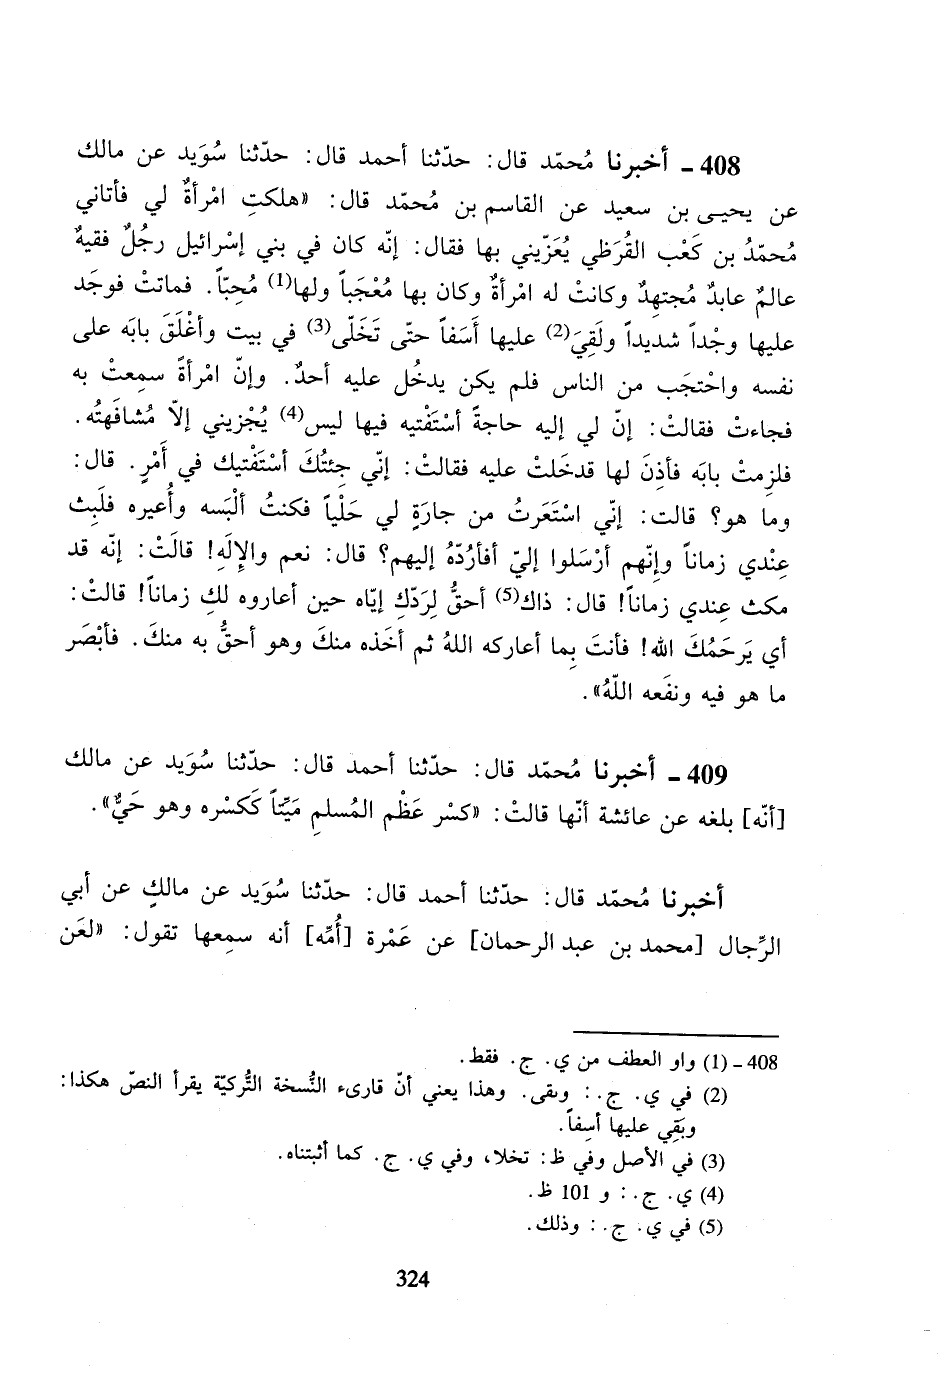 408 ـ أخبرنا مُحمّد قال: حدّثنا أحمد قال: حدّثنا سُوَيد عن مالك
عن يحيـى بن سعيد عن القاسم بن مُحمّد قال: «هلكتِ امْرأةٌ لي فأتاني
مُحمّدُ بن كَعْب القُرَظي يُعَزّيني بها فقال: إنّه كان في بني إسْرائيل رجُلٌ فقيهٌ
عالمٌ عابدٌ مُجتهِدٌ وكانتْ له امْرأةٌ وكان بها مُعْجَباً ولها(1) مُحِبّاً. فماتتْ فوجَد
عليها وجْداً شديداً ولَقِيَ(2) عليها أَسَفاً حتّى تَخَلّى(3) في بيت وأغْلَقَ بابَه على
نفسه واحْتجَب من الناس فلم يكن يدخُل عليه أحدٌ. وإنّ امْرأةً سمِعتْ به
فجاءتْ فقالتْ: إنّ لي إليه حاجةً أسْتَفْتيه فيها ليس(4) يُجْزيني إلاّ مُشافَهتُه.
فلزِمتْ بابَه فأذِنَ لها قدخَلتْ عليه فقالتْ: إنّي جِئتُكَ أسْتَفْتيك في أَمْرٍ. قال:
وما هو؟ قالت: إنّي اسْتَعَرتُ من جارَةٍ لي حَلْياً فكنتُ ألْبَسه وأُعيره فلَبِث
عِنْدي زماناً وإنّهم أرْسَلوا إليّ أفأرُدّهُ إليهم؟ قال: نعم والإلَهِ! قالَتْ: إنّه قد
مكث عِندي زماناً! قال: ذاك(5) أحقُّ لِرَدّكِ إيّاه حين أعاروه لكِ زماناً! قالتْ:
أي يَرحَمُكَ الله! فأنتَ بِما أعاركه اللهُ ثم أخَذه منكَ وهو أحقُّ به منكَ. فأبْصَر
ما هو فيه ونفَعه اللّهُ».
409 ـ أخبرنا مُحمّد قال: حدّثنا أحمد قال: حدّثنا سُوَيد عن مالك
[أنّه] بلغه عن عائشة أنّها قالتْ: «كسْر عَظْم المُسلمِ مَيّتاً كَكسْره وهو حَيٌّ».
أخبرنا مُحمّد قال: حدّثنا أحمد قال: حدّثنا سُوَيد عن مالكٍ عن أبي
الرِّجال [محمد بن عبد الرحمان] عن عَمْرة [أُمّه] أنه سمِعها تقول: «لعَن
408 ـ (1) واو العطف من ي. ج. فقط.
(2) في ي. ج.: وىقى. وهذا يعني أنّ قارىء النُّسخة التُّركيّة يقرأ النصّ هكذا:
وبَقِي عليها أسِفاً.
(3) في الأصل وفي ظ: تخلا، وفي ي. ج. كما أثبتناه.
(4) ي. ج.: و 101 ظ.
(5) في ي. ج.: وذلك.
324